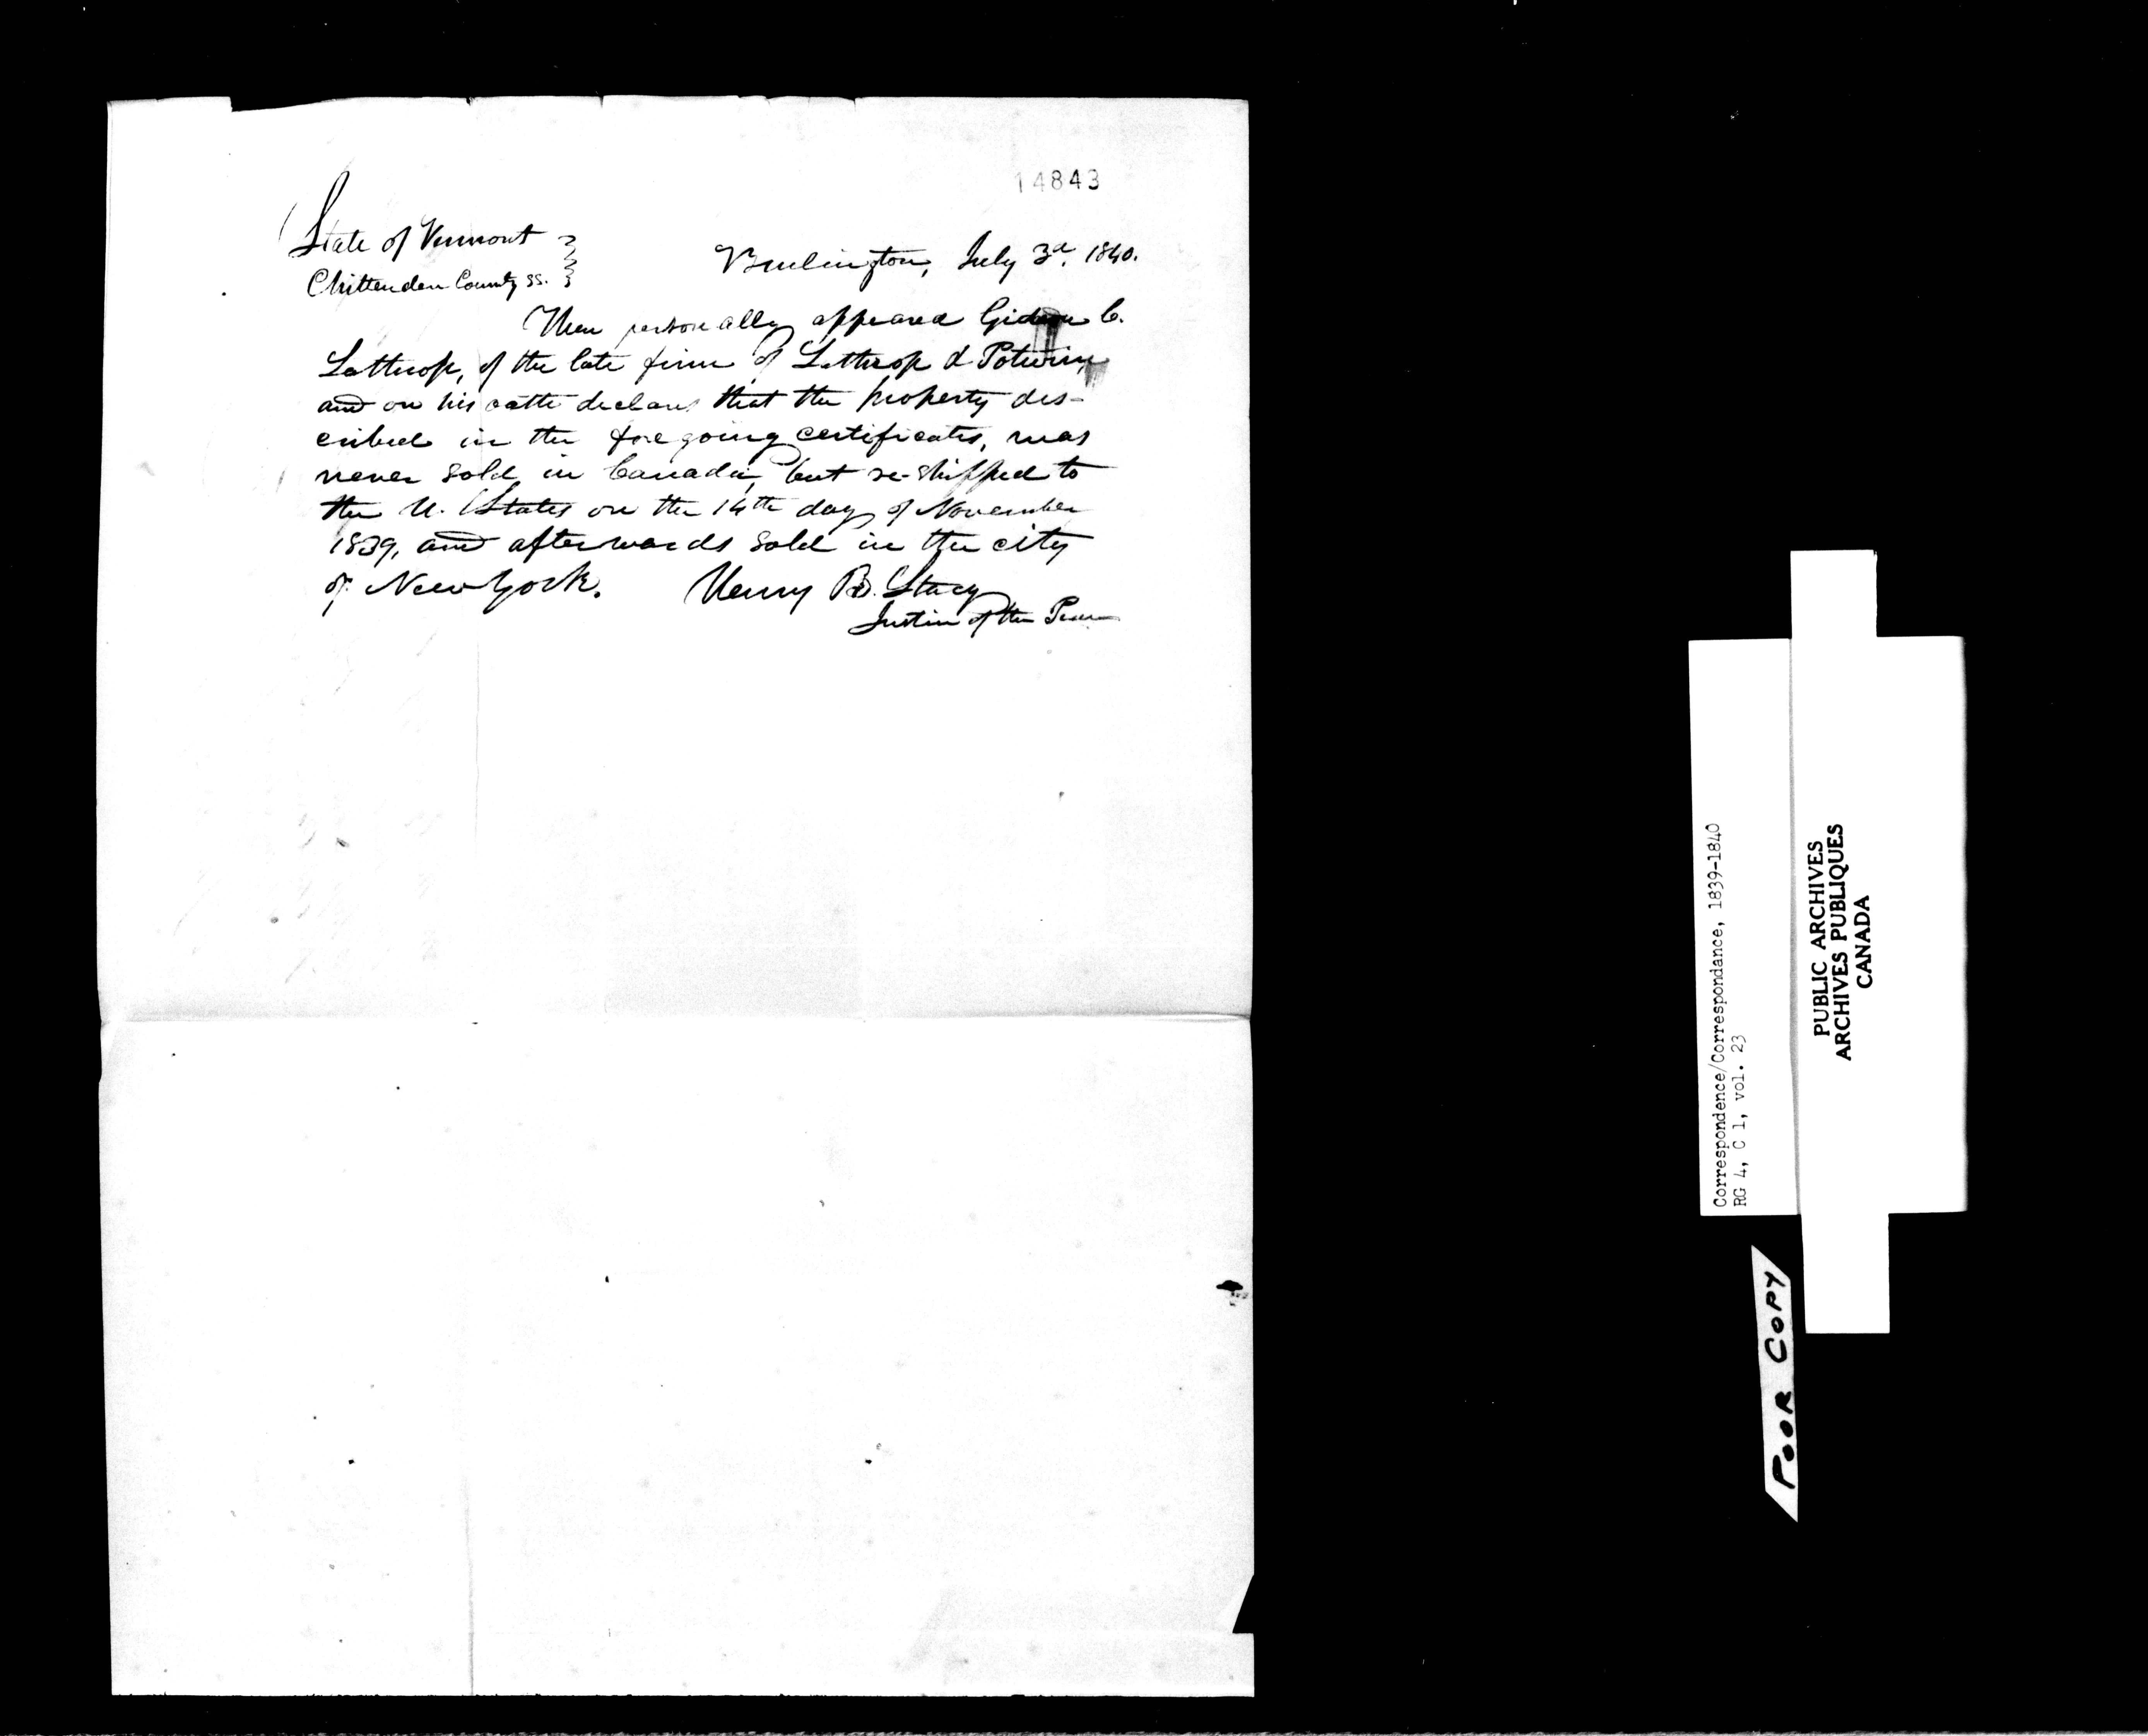 14843
State of Vermont
Chittenden County ss.
Burlington, July 3d. 1840.
Then personally appeared Gideon C.
Lathrop, of the late firm of Lathrop & Potwin,
and on his oath declares that the property des-
cribed in the foregoing certificates, was
never sold in Canada, but re-shipped to
the U. States on the 14th day of November
1839, and afterwards sold in the city
of New York.
Henry B. Stacy
Justice of the Peace
Correspondence/Correspondance, 1839-1840
RG 4, C 1, vol. 23
PUBLIC ARCHIVES
ARCHIVES PUBLIQUES
CANADA
POOR COPY